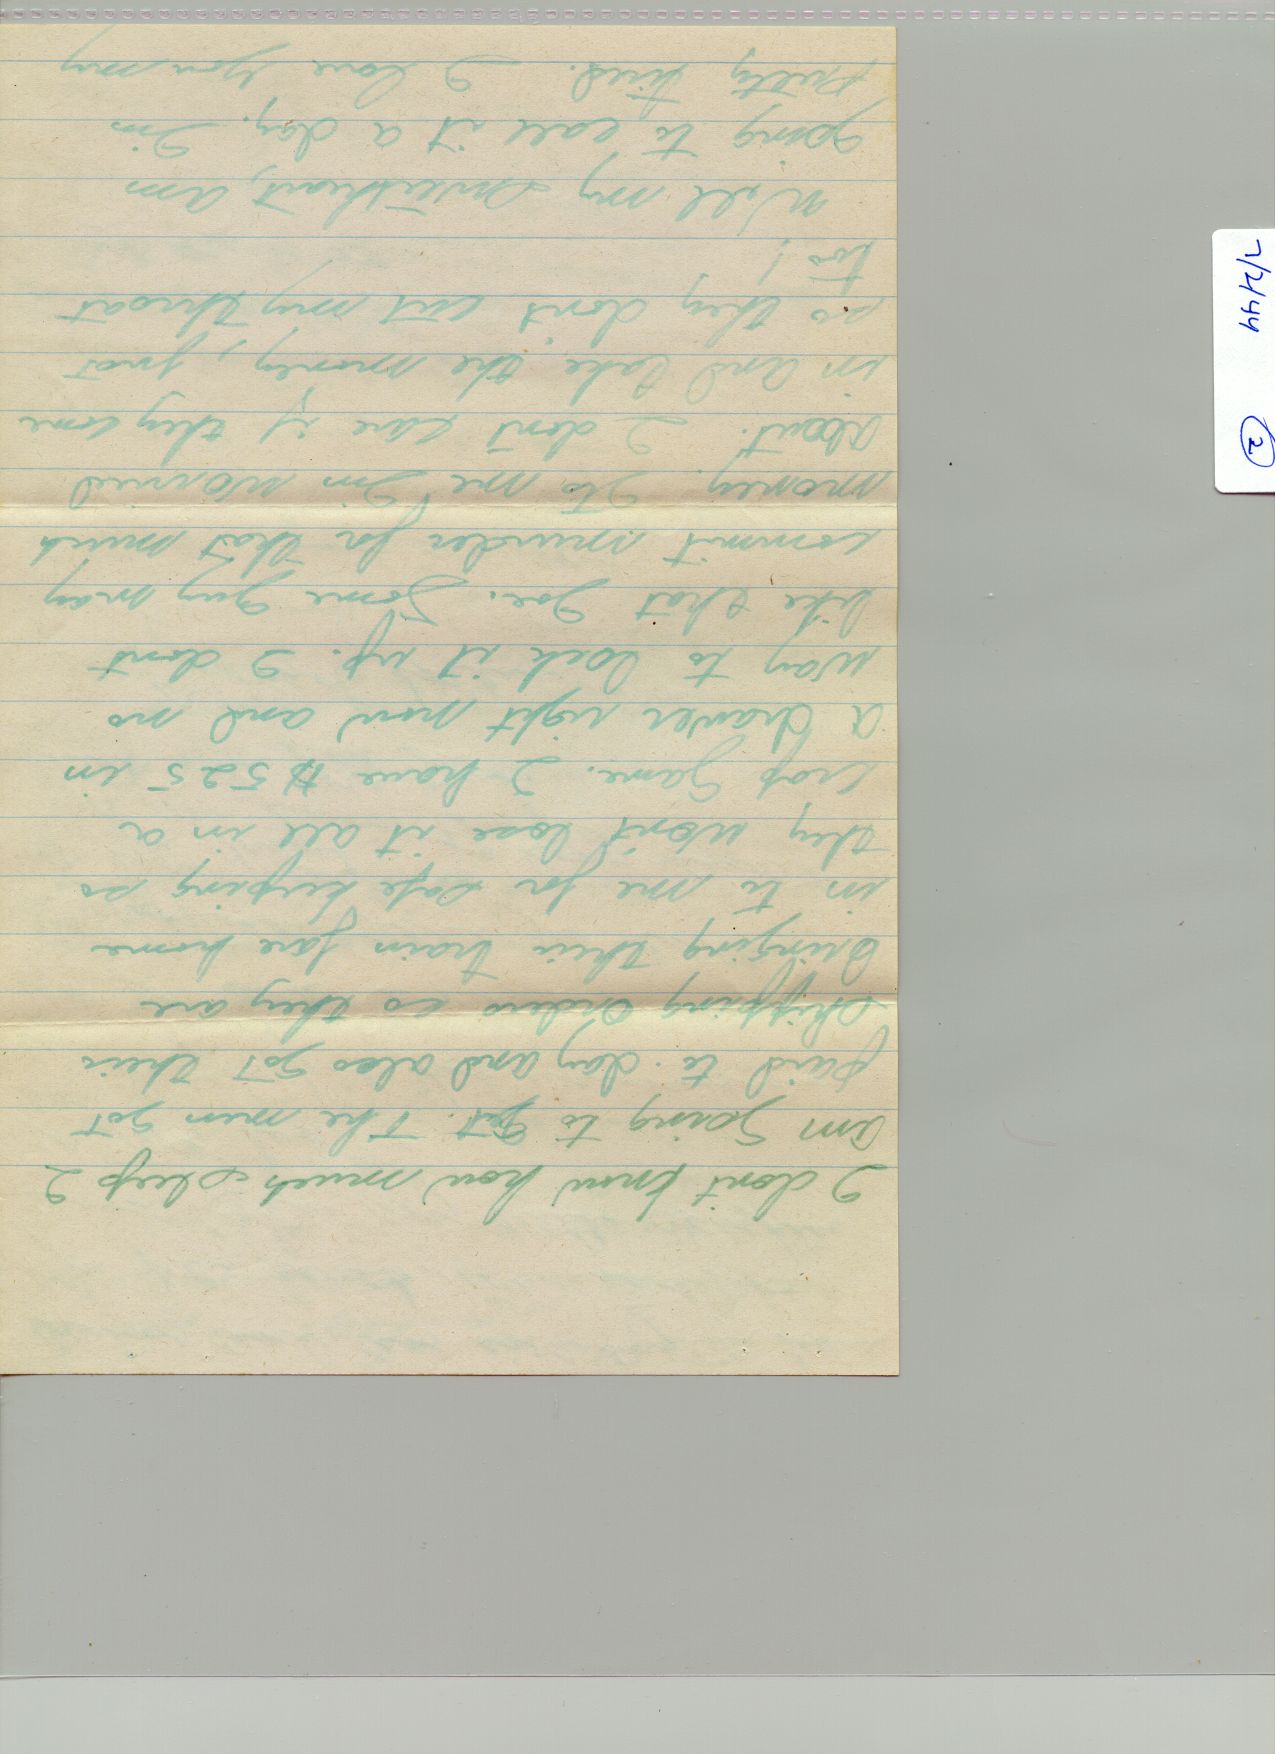 I dont know how much sleep I
am going to get. The men got
paid to-day and also got their
shipping orders so they are
bringing their train fare home
in to me for safe keeping so
they wont lose it all in a
crap game. I have $525 in
a drawer right now and no
way to lock it up. I dont
like that Joe. Some guy may
commit murder for that much
money. Its me I'm worried
about. I dont care if they come
in and take the money, just
so they dont cut my throat
too!
Well my sweetheart, am
going to call it a day. I'm
pretty tired. I love you my
7/2/44
2